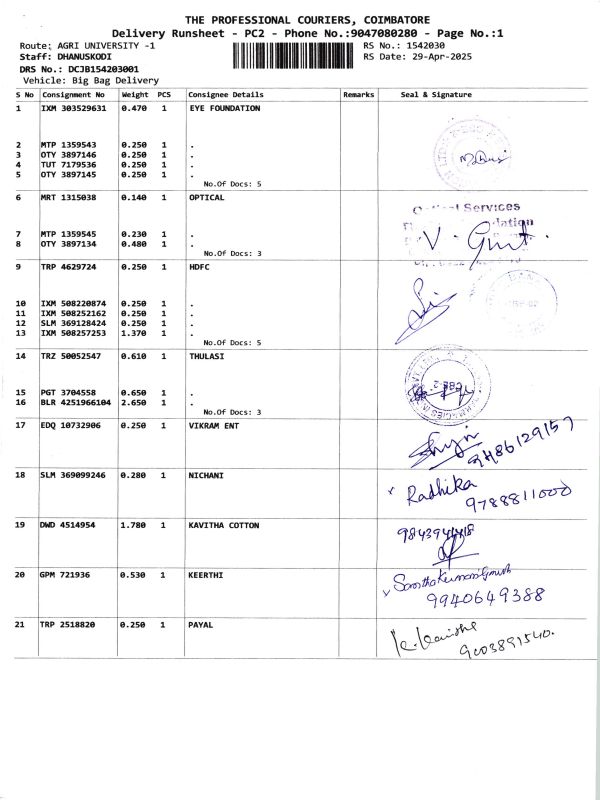 THE PROFESSIONAL COURIERS, COIMBATORE
Delivery Runsheet - PC2 - Phone No.:9047080280 - Page No.:1
Route: AGRI UNIVERSITY -1
RS No.: 1542030
Staff: DHANUSKODI
RS Date: 29-Apr-2025
DRS No.: DCJB154203001
Vehicle: Big Bag Delivery
S No Consignment No Weight PCS Consignee Details Remarks Seal & Signature
1 IXM 303529631 0.470 1 EYE FOUNDATION
2 MTP 1359543 0.250 1 .
3 OTY 3897146 0.250 1 .
4 TUT 7179536 0.250 1 .
5 OTY 3897145 0.250 1 .
No.Of Docs: 5
6 MRT 1315038 0.140 1 OPTICAL
Services
7 MTP 1359545 0.230 1 .
8 OTY 3897134 0.480 1 .
No.Of Docs: 3
9 TRP 4629724 0.250 1 HDFC
10 IXM 508220874 0.250 1 .
11 IXM 508252162 0.250 1 .
12 SLM 369128424 0.250 1 .
13 IXM 508257253 1.370 1 .
No.Of Docs: 5
14 TRZ 50052547 0.610 1 THULASI
15 PGT 3704558 0.650 1 .
16 BLR 4251966104 2.650 1 .
No.Of Docs: 3
17 EDQ 10732906 0.250 1 VIKRAM ENT
9486129157
18 SLM 369099246 0.280 1 NICHANI
Radhika
9788811000
19 DWD 4514954 1.780 1 KAVITHA COTTON
20 GPM 721936 0.530 1 KEERTHI
9940649388
21 TRP 2518820 0.250 1 PAYAL
9003891540.